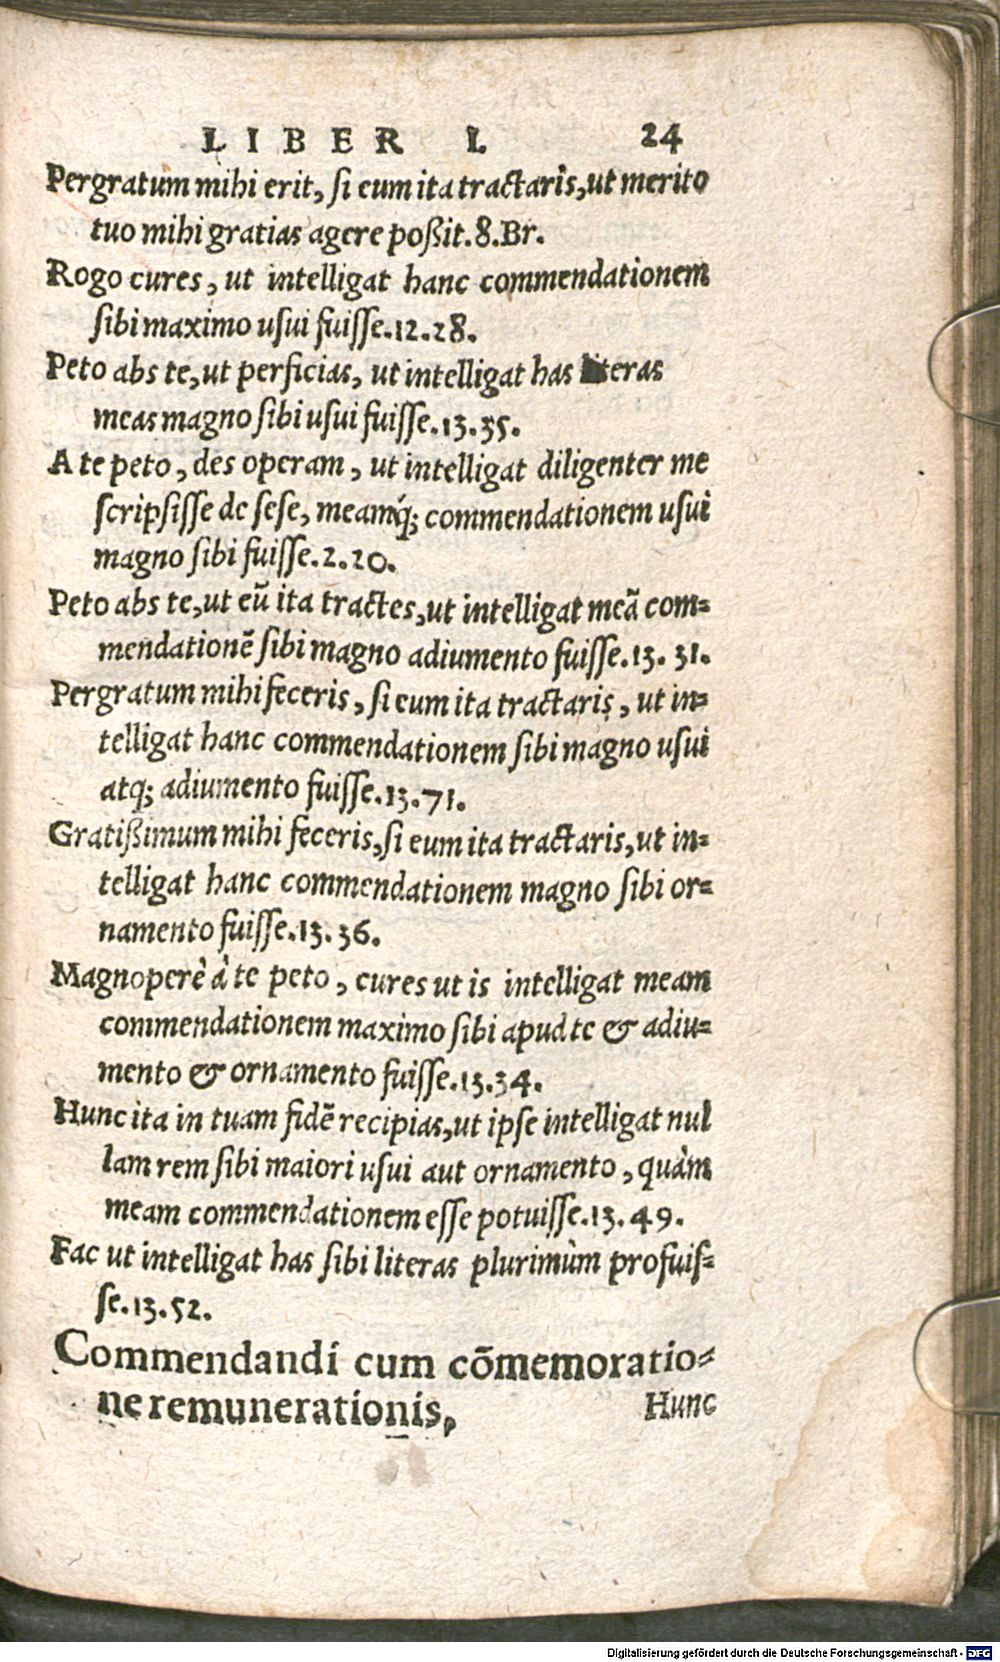 LIBER I. 24
Pergratum mihi erit, si eum ita tractaris, ut merito
tuo mihi gratias agere poßit.8.Br.
Rogo cures, ut intelligat hanc commendationem
sibi maximo usui fuisse.12.28.
Peto abs te, ut perficias, ut intelligat has literas
meas magno sibi usui fuisse.13.35.
A te peto, des operam, ut intelligat diligenter me
scripsisse de sese, meamq́; commendationem usui
magno sibi fuisse.2.20.
Peto abs te, ut eũ ita tractes, ut intelligat meã com=
mendationẽ sibi magno adiumento fuisse.13.31.
Pergratum mihi feceris, si eum ita tractaris, ut in=
telligat hanc commendationem sibi magno usui
atq; adiumento fuisse.13.71.
Gratißimum mihi feceris, si eum ita tractaris, ut in=
telligat hanc commendationem magno sibi or=
namento fuisse.13.36.
Magnoperè à te peto, cures ut is intelligat meam
commendationem maximo sibi apud te & adiu=
mento & ornamento fuisse.13.34.
Hunc ita in tuam fidẽ recipias, ut ipse intelligat nul
lam rem sibi maiori usui aut ornamento, quàm
meam commendationem esse potuisse.13.49.
Fac ut intelligat has sibi literas plurimùm profuis=
se.13.52.
Commendandi cum cõmemoratio=
ne remunerationis,
Hunc
Digitalisierung gefördert durch die Deutsche Forschungsgemeinschaft - DFG